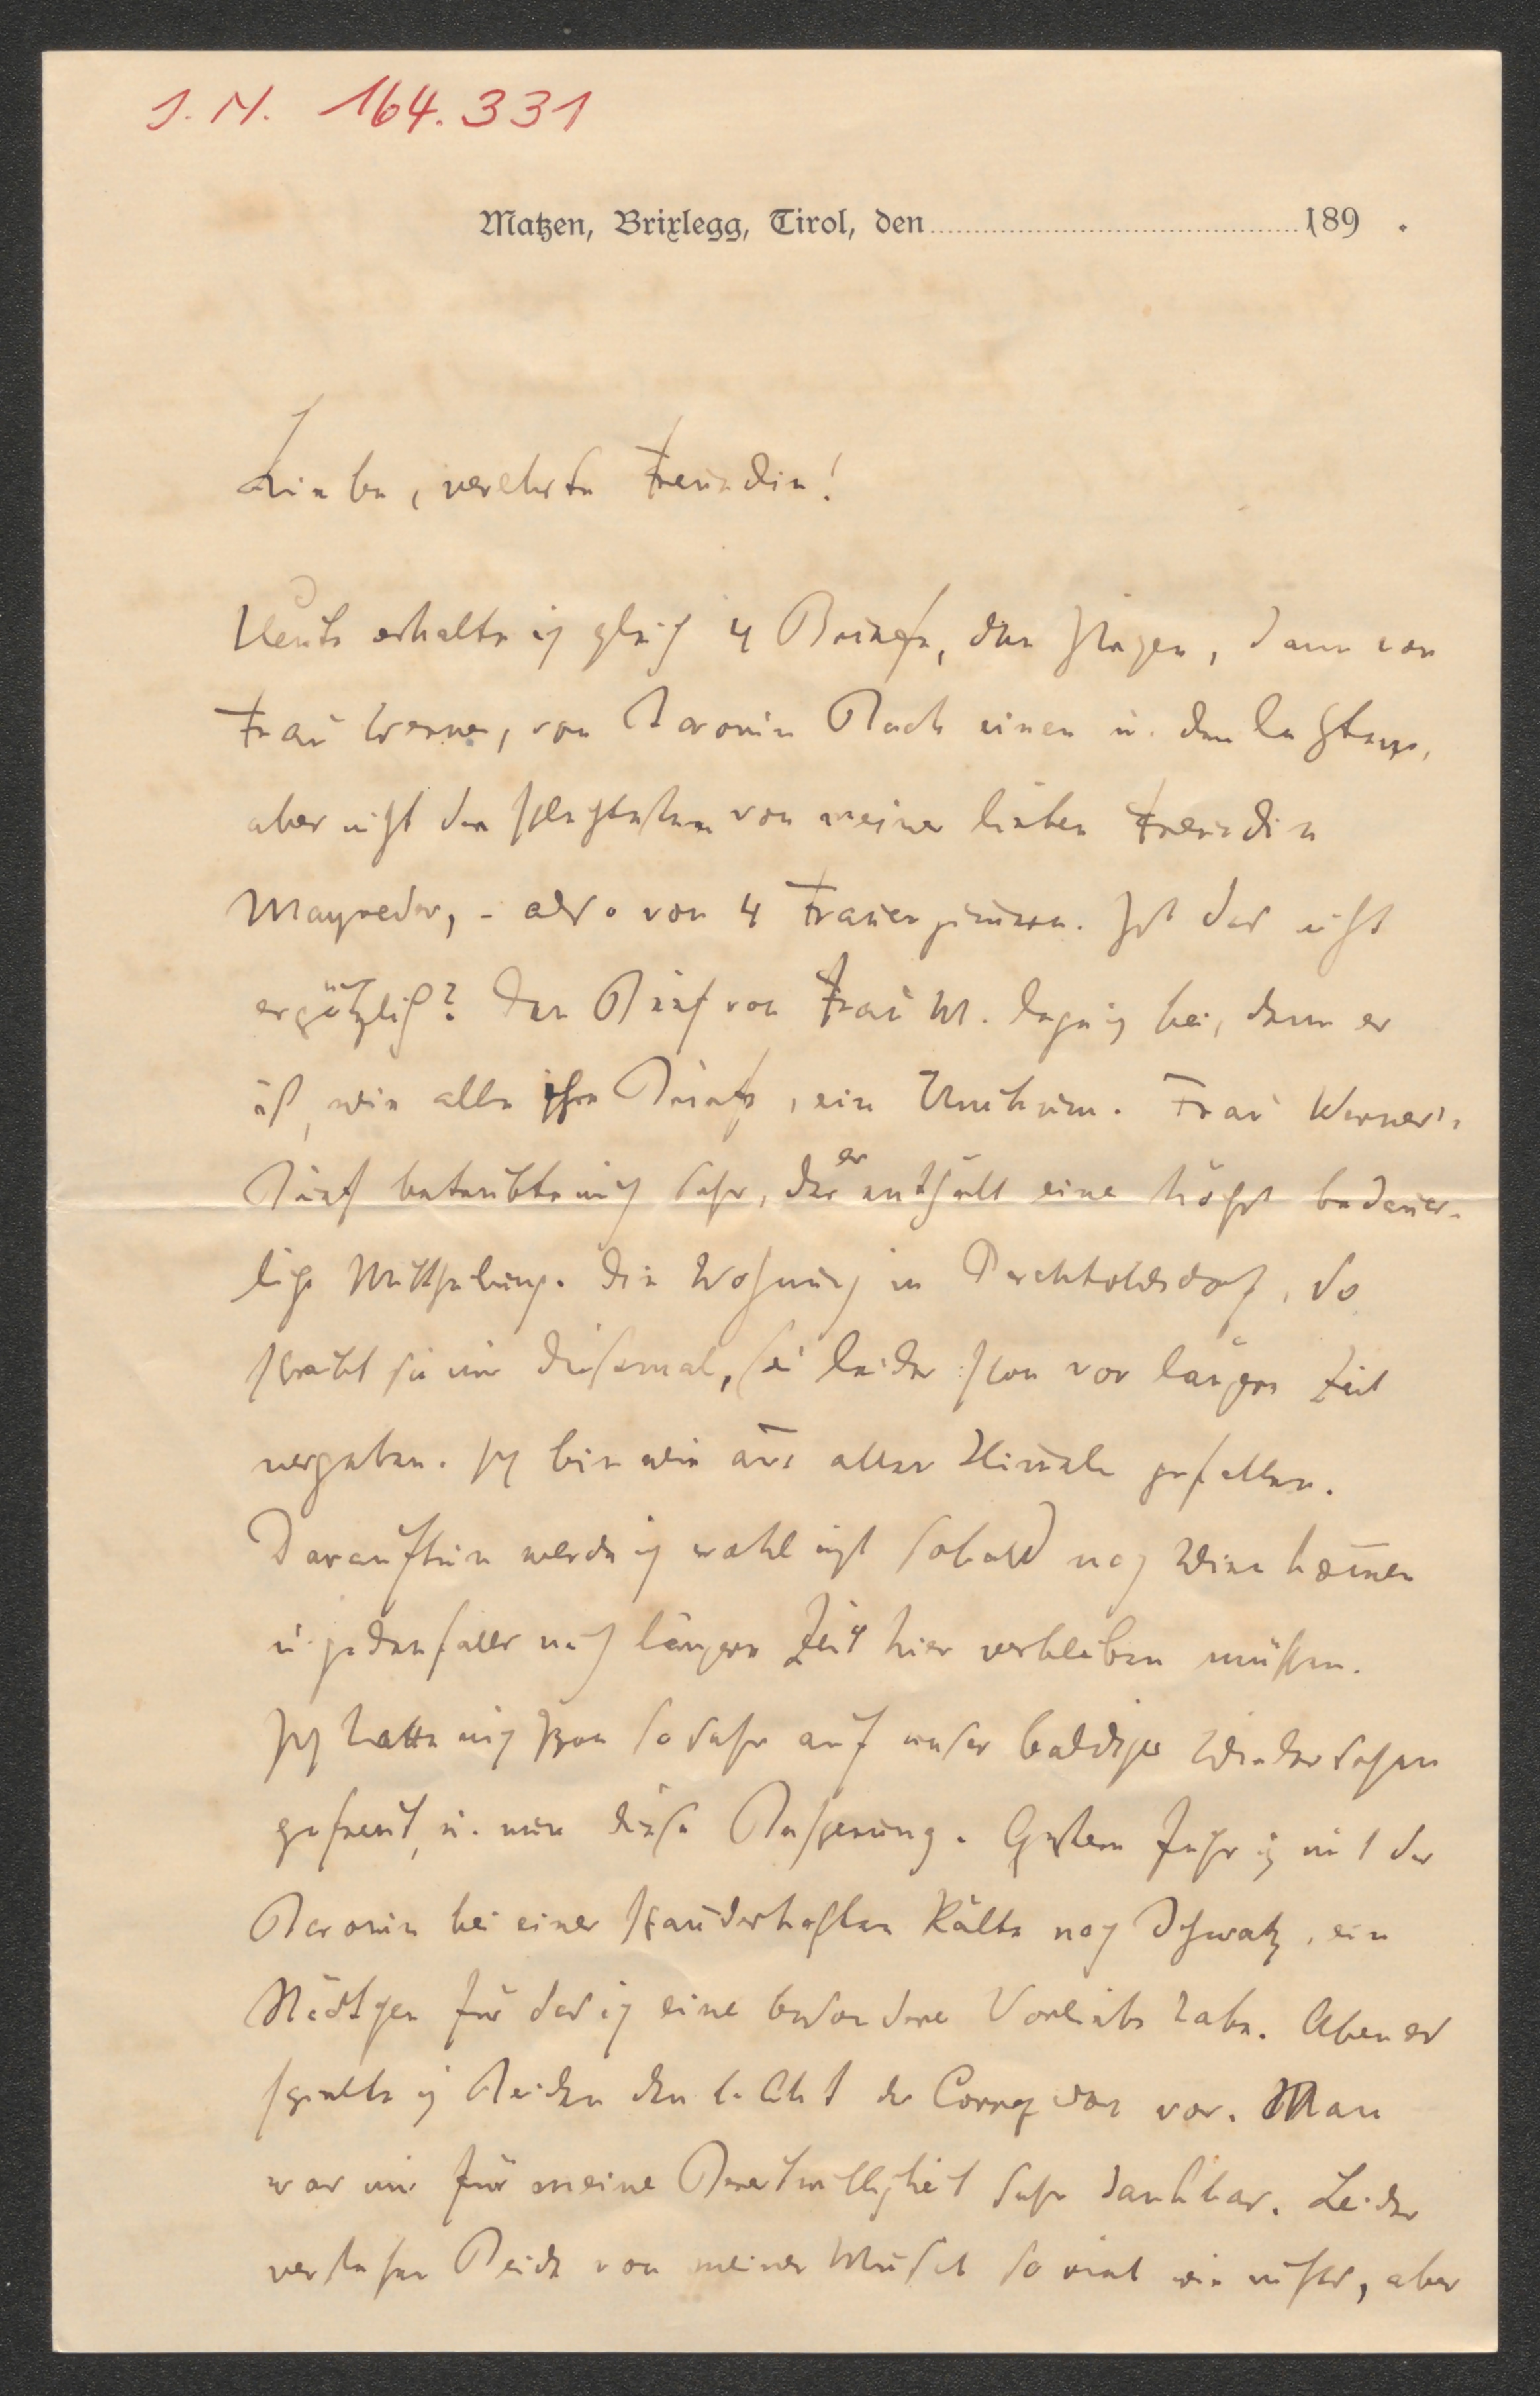 I.N. 164.331
Matzen, Brixlegg, Tirol, den 189 .
Liebe, verehrte Freundin!
Heute erhalte ich gleich 4 Briefe, den Ihrigen, dann von
Frau Werner, von Baronin Bach einen u. den letzten,
aber nicht den schlechtesten von meiner lieben Freundin
Mayreder, - also von 4 Frauenzimmern. Ist das nicht
ergötzlich? Den Brief von Frau M. lege ich bei, denn er
ist, wie alle ihre Briefe, ein Unicum. Frau Werner's
Brief betrübte mich sehr, der er enthält eine höchst bedauer-
liche Mittheilung. Die Wohnung in Perchtoldsdorf, so
schreibt sie mir diesmal, sei leider schon vor längerer Zeit
vergeben. Ich bin wie aus allen Himmeln gefallen.
Daraufhin werde ich wohl nicht sobald nach Wien kommen
u. jedenfalls noch längere Zeit hier verbleiben müssen.
Ich hatte mich schon so sehr auf unser baldiges Wiedersehen
gefreut, u. nun diese Bescherung. Gestern fuhr ich mit der
Baronin bei einer schauderhaften Kälte nach Schwatz, ein
Städtchen für das ich eine besondere Vorliebe habe. Abends
spielte ich Beiden den 1. Akt des Corregidor vor. Man
war mir für meine Bereitwilligkeit sehr dankbar. Leider
verstehen Beide von meiner Musik so viel wie nichts, aber